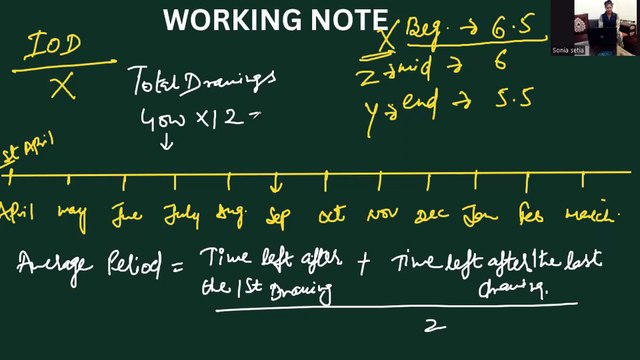 WORKING NOTE
IOD
X
X Beg. → 6.5
Z → mid → 6
Y → end → 5.5
Total Drawings
400 X 12 =
↓
1st April
April may June July Aug. Sep Oct Nov Dec Jan Feb March.
Average Period = Time left after the 1st Drawing + Time left after the last drawing.
2
Sonia setia